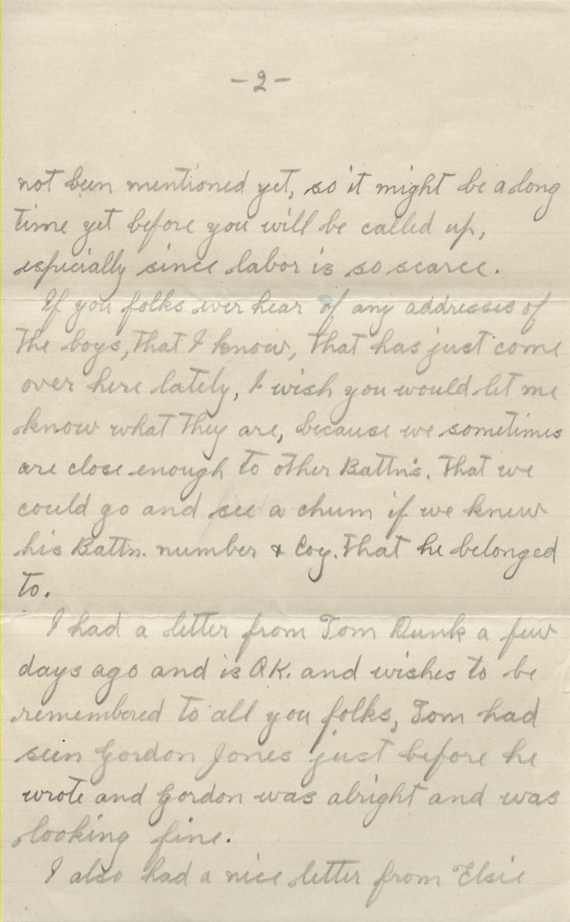 -2-
not been mentioned yet, so it might be a long
time yet before you will be called up,
especially since labor is so scarce.
If you folks ever hear of any addresses of
the boys, that I know, that has just come
over here lately, I wish you would let me
know what they are, because we sometimes
are close enough to other Battn's. that we
could go and see a chum if we knew
his Battn. number & Coy. that he belonged
to.
I had a letter from Tom Runk a few
days ago and is O.K. and wishes to be
remembered to all you folks, Tom had
seen Gordon Jones just before he
wrote and Gordon was alright and was
looking fine.
I also had a nice letter from Elsie